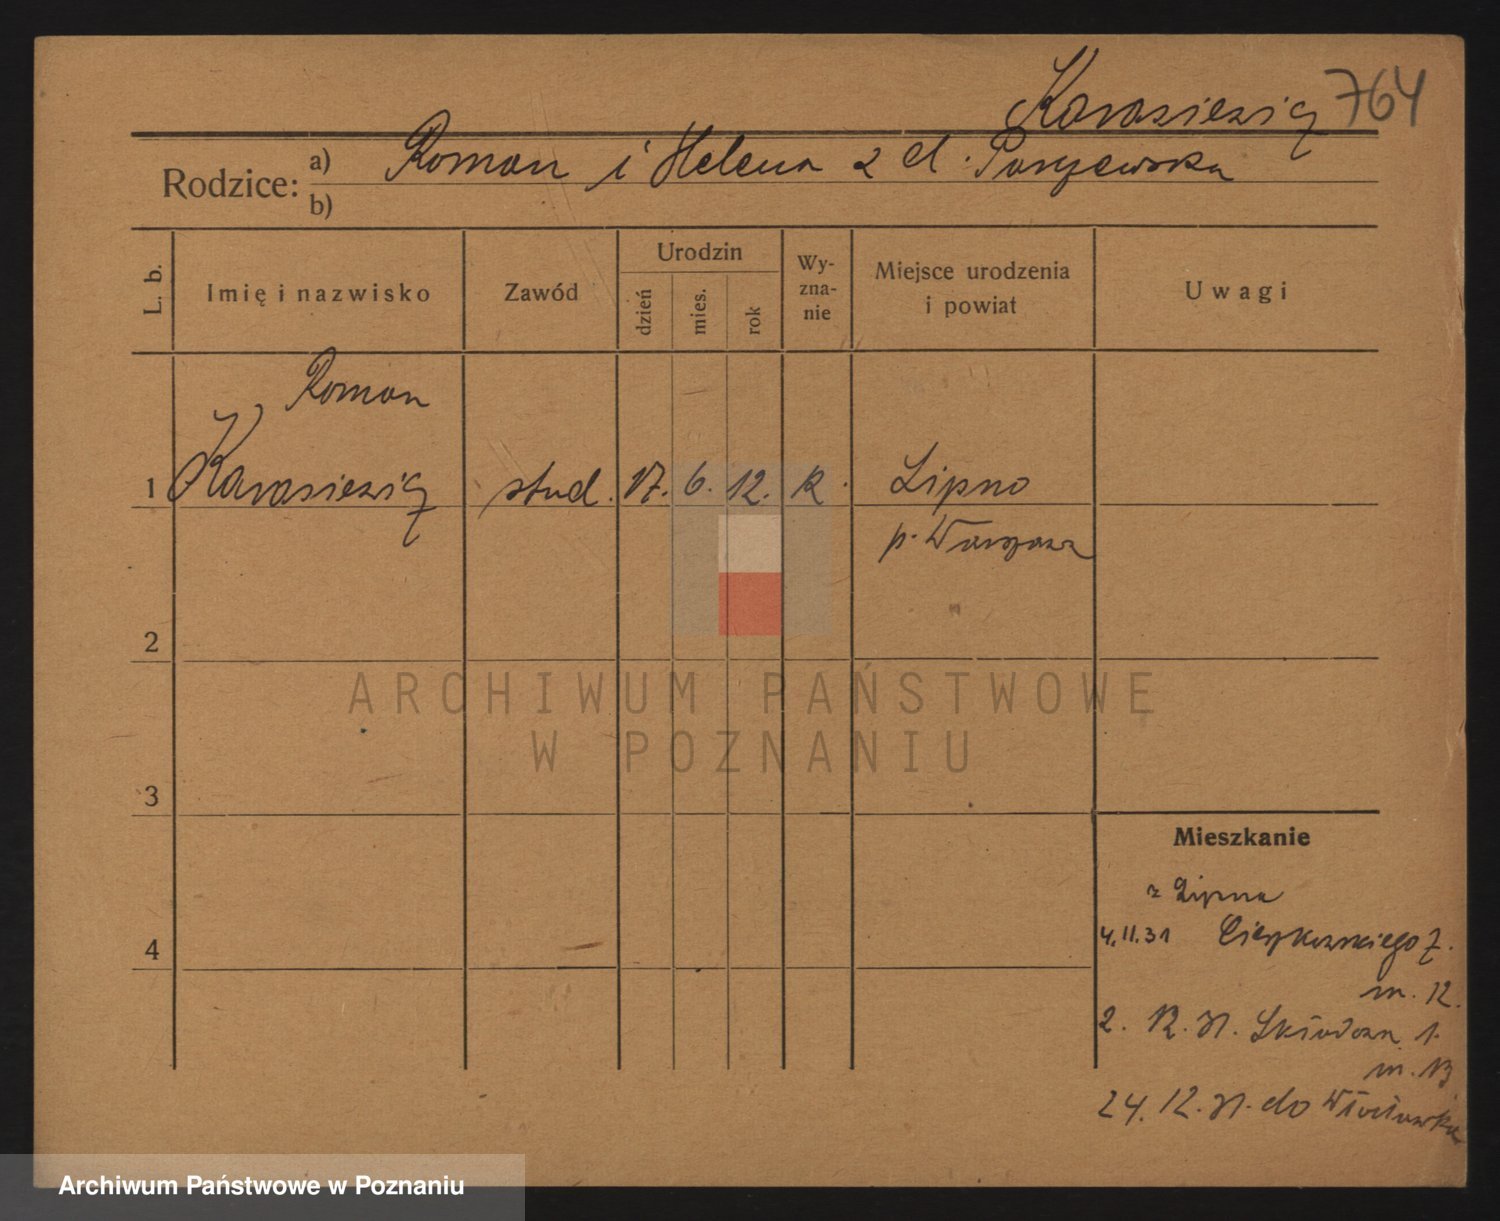 Karasiewicz 764
Rodzice: a) Roman i Helena z d. Paryżewska
b)
L. b.
Imię i nazwisko
Zawód
Urodzin
dzień
mies.
rok
Wy-
zna-
nie
Miejsce urodzenia
i powiat
Uwagi
Roman
1 Karasiewicz stud. 17. 6. 12. k. Lipno
p. Warszawa
2
ARCHIWUM PAŃSTWOWE
W POZNANIU
3
Mieszkanie
z Lipna
4.11.31 Cieszkowskiego 7.
4
m. 12.
2. 12. 31. Składowa 1.
m. 13
24. 12. 31. do Włocławka
Archiwum Państwowe w Poznaniu